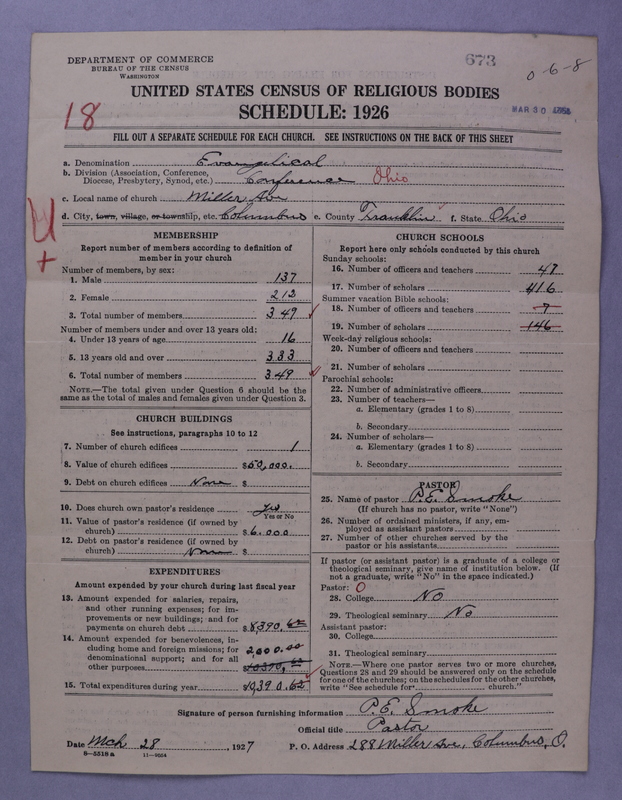 DEPARTMENT OF COMMERCE
BUREAU OF THE CENSUS
WASHINGTON
673
0-6-8
UNITED STATES CENSUS OF RELIGIOUS BODIES
SCHEDULE: 1926
MAR 30
18
FILL OUT A SEPARATE SCHEDULE FOR EACH CHURCH. SEE INSTRUCTIONS ON THE BACK OF THIS SHEET
a. Denomination Evangelical
b. Division (Association, Conference,
Diocese, Presbytery, Synod, etc.) Conference Ohio
c. Local name of church Miller Ave
d. City, town, village, or township, etc. Columbus e. County Franklin f. State Ohio
MEMBERSHIP
Report number of members according to definition of
member in your church
Number of members, by sex:
1. Male 137
2. Female 212
3. Total number of members 349
Number of members under and over 13 years old:
4. Under 13 years of age 16
5. 13 years old and over 333
6. Total number of members 349
NOTE.—The total given under Question 6 should be the
same as the total of males and females given under Question 3.
CHURCH BUILDINGS
See instructions, paragraphs 10 to 12
7. Number of church edifices 1
8. Value of church edifices $50,000.
9. Debt on church edifices None $
10. Does church own pastor's residence yes
Yes or No
11. Value of pastor's residence (if owned by
church) $6.000
12. Debt on pastor's residence (if owned by
church) None $
EXPENDITURES
Amount expended by your church during last fiscal year
13. Amount expended for salaries, repairs,
and other running expenses; for im-
provements or new buildings; and for
payments on church debt $8390.62
14. Amount expended for benevolences, in-
cluding home and foreign missions; for
denominational support; and for all
other purposes 2,000.00
10390.62
15. Total expenditures during year $10,390.62
CHURCH SCHOOLS
Report here only schools conducted by this church
Sunday schools:
16. Number of officers and teachers 47
17. Number of scholars 416
Summer vacation Bible schools:
18. Number of officers and teachers 7
19. Number of scholars 146
Week-day religious schools:
20. Number of officers and teachers
21. Number of scholars
Parochial schools:
22. Number of administrative officers
23. Number of teachers—
a. Elementary (grades 1 to 8)
b. Secondary
24. Number of scholars—
a. Elementary (grades 1 to 8)
b. Secondary
PASTOR
25. Name of pastor P.E. Smoke
(If church has no pastor, write "None")
26. Number of ordained ministers, if any, em-
ployed as assistant pastors
27. Number of other churches served by the
pastor or his assistants
If pastor (or assistant pastor) is a graduate of a college or
theological seminary, give name of institution below. (If
not a graduate, write "No" in the space indicated.)
Pastor: 0
28. College No
29. Theological seminary No
Assistant pastor:
30. College
31. Theological seminary
NOTE.—Where one pastor serves two or more churches,
Questions 28 and 29 should be answered only on the schedule
for one of the churches; on the schedules for the other churches,
write "See schedule for church."
Signature of person furnishing information P.E. Smoke
Official title Pastor
Date Mch 28, 1927 P. O. Address 288 Miller Ave, Columbus, O.
8—5518a 11—9034